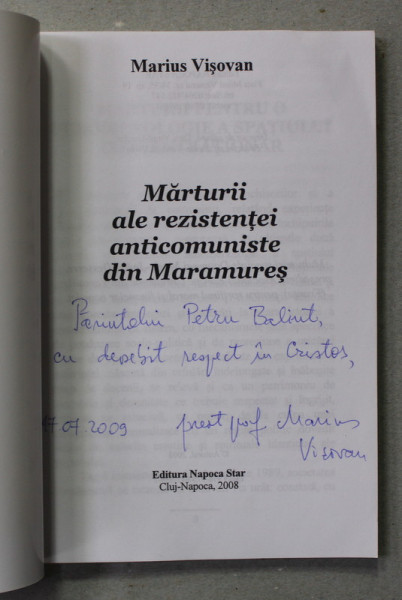 Marius Vişovan
Mărturii
ale rezistenţei
anticomuniste
din Maramureş
Părintelui Petru Balint,
cu deosebit respect în Cristos,
17.07.2009 preot prof Marius
Vişovan
Editura Napoca Star
Cluj-Napoca, 2008